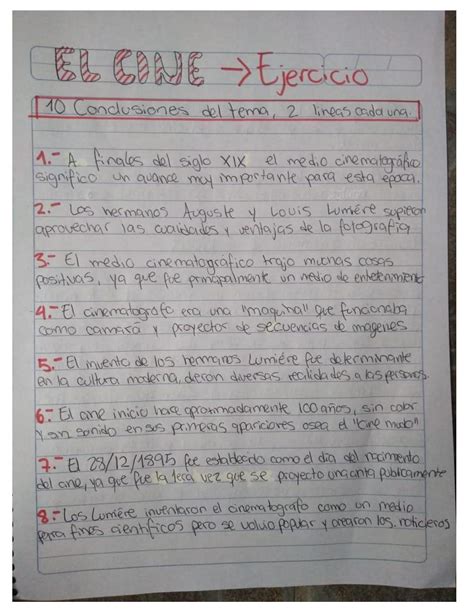 EL CINE → Ejercicio
10 Conclusiones del tema, 2 lineas cada una.
1.- A finales del siglo XIX el medio cinematográfico
significo un avance muy importante para esta época.
2.- Los hermanos Auguste y Louis Lumiére supieron
aprovechar las cualidades y ventajas de la fotografía
3.- El medio cinematográfico trajo muchas cosas
positivas, ya que fue principalmente un medio de entretenimiento
4.- El cinematografo era una "maquina" que funcionaba
como camara y proyector de secuencias de imagenes.
5.- El invento de los hermanos Lumiére fue determinante
en la cultura moderna, dieron diversas realidades a las personas.
6.- El cine inicio hace aproximadamente 100 años, sin color
y sin sonido en sus primeras apariciones osea el "cine mudo"
7.- El 28/12/1895 fue establecido como el dia del nacimiento
del cine, ya que fue la 1era vez que se proyecto una cinta publicamente
8.- Los Lumiére inventaron el cinematografo como un medio
para fines cientificos pero se volvio popular y crearon los noticieros